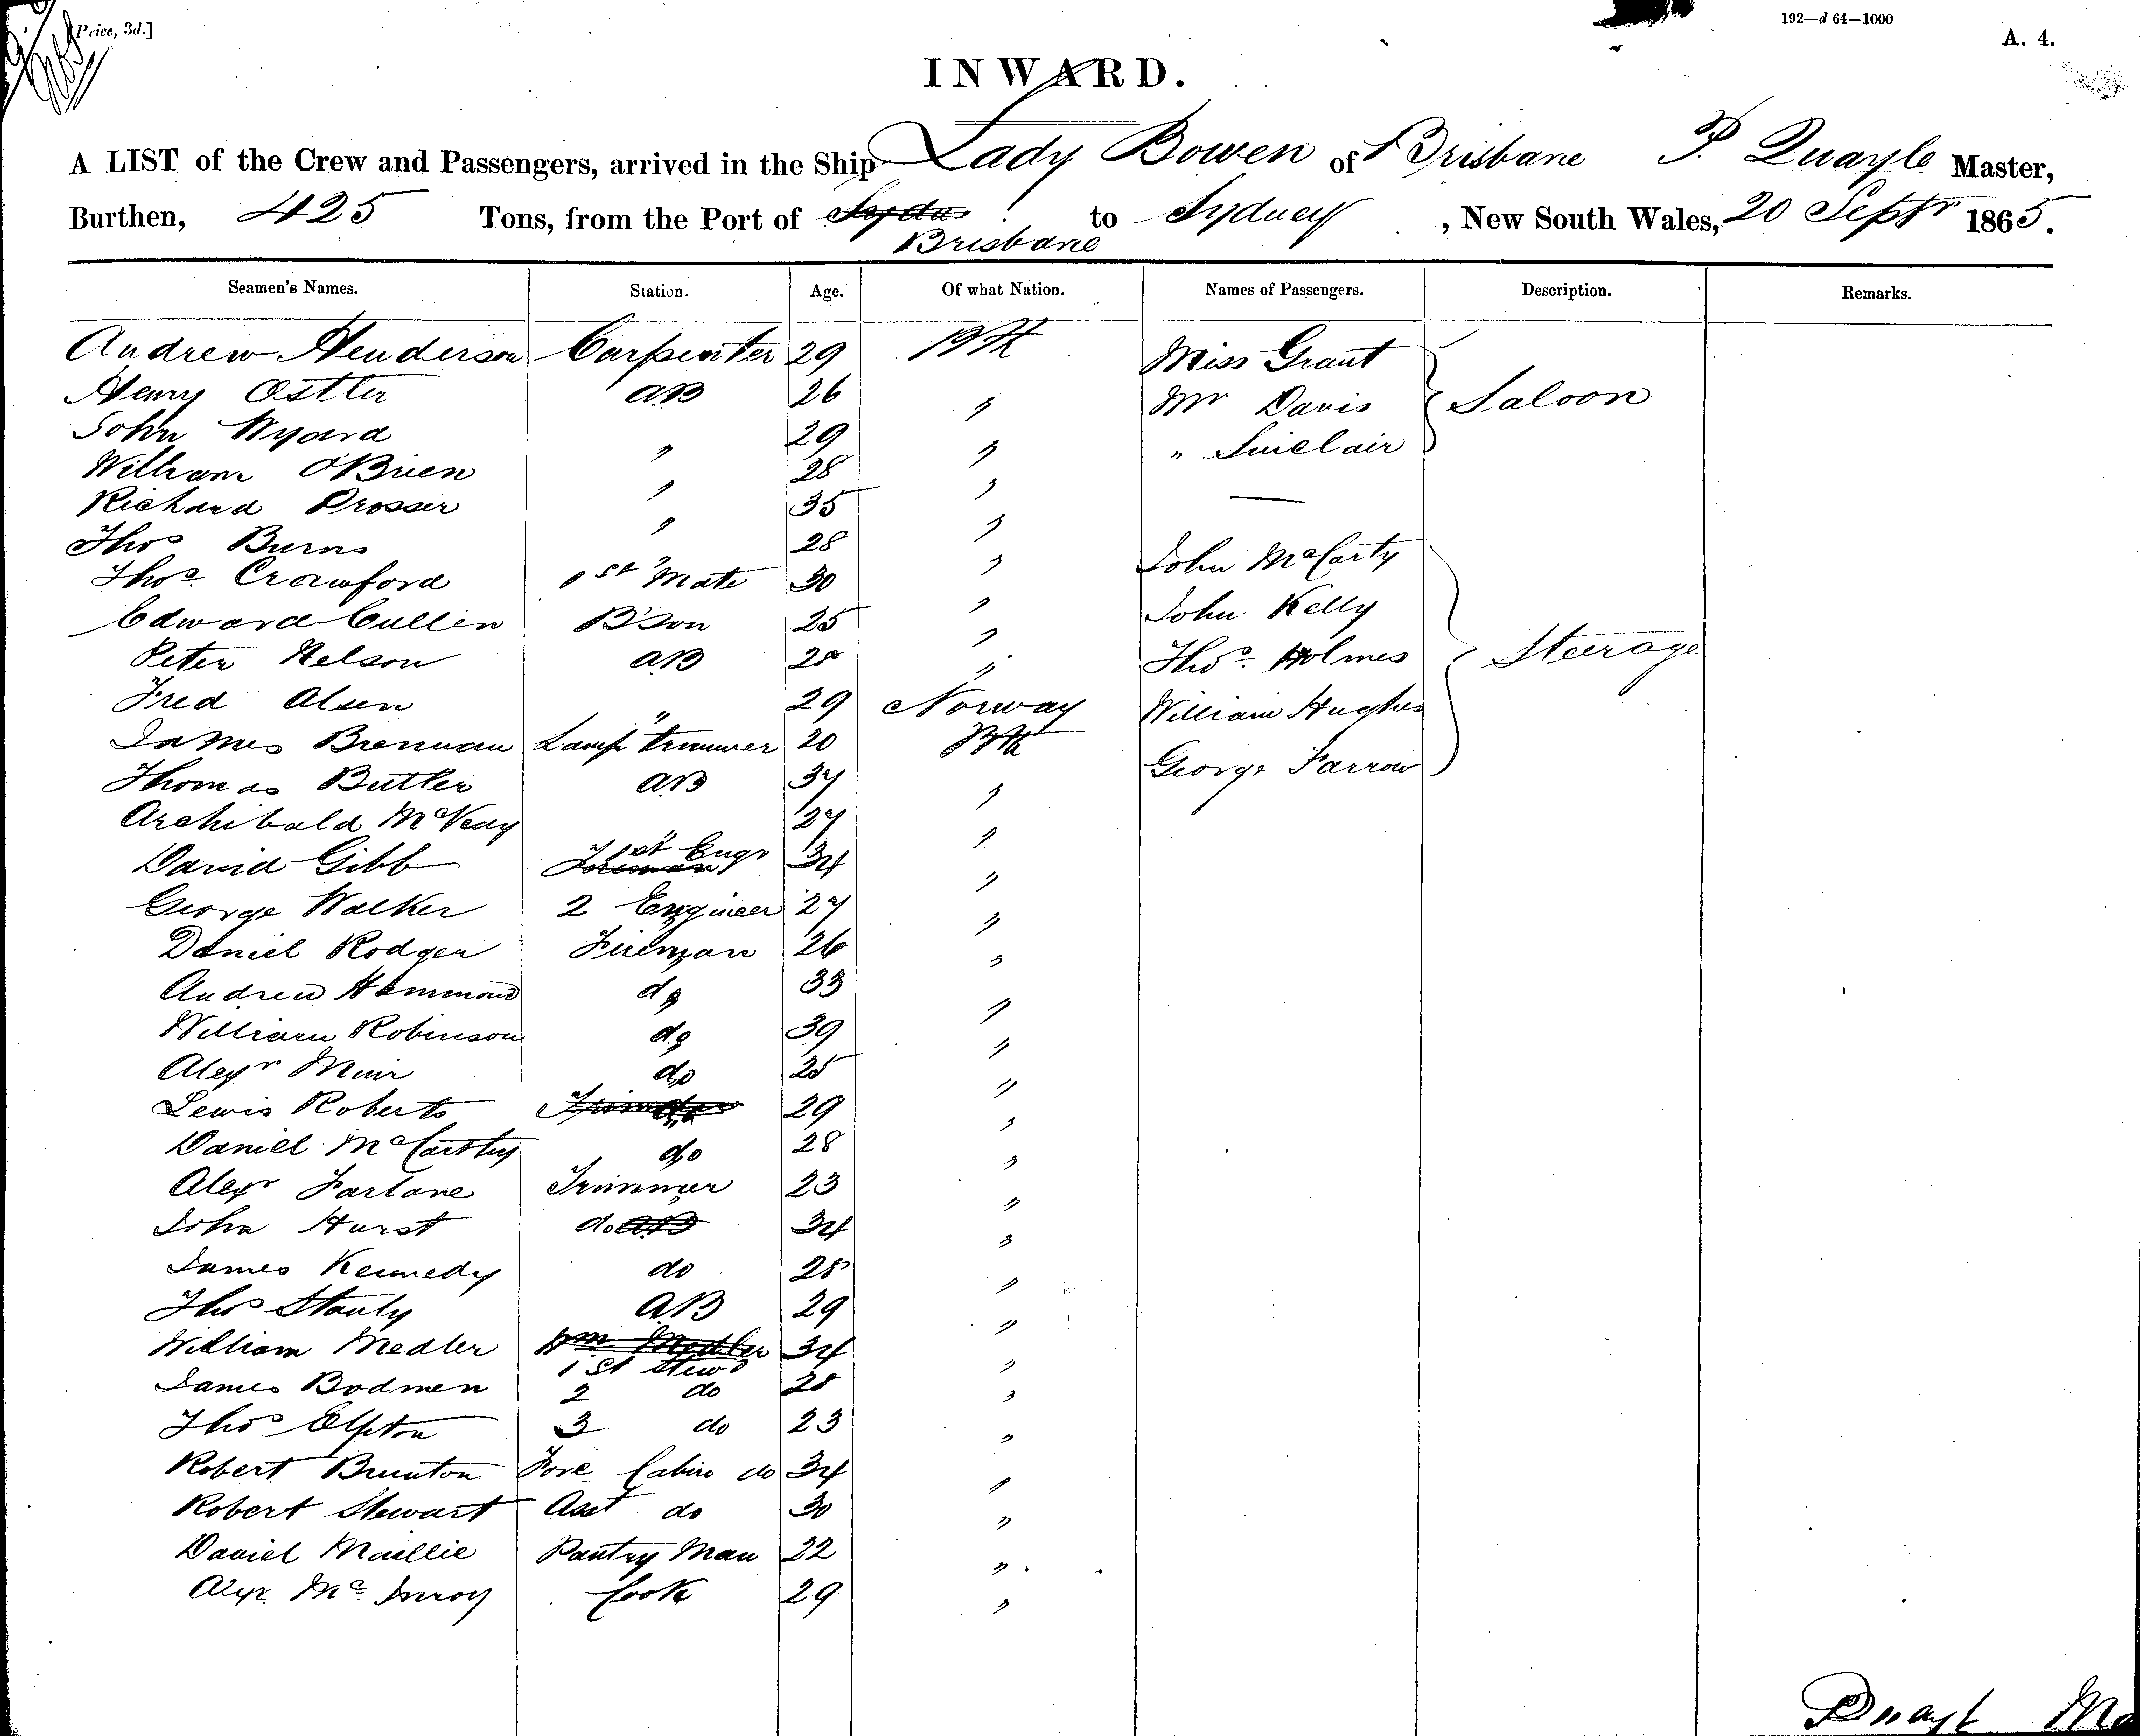 Price, 3d.]
192—d 64—1000
A. 4.
INWARD.
A LIST of the Crew and Passengers, arrived in the Ship Lady Bowen of Brisbane P. Quayle Master,
Burthen, 425 Tons, from the Port of Brisbane to Sydney, New South Wales, 20 Septr 1865.
Seamen's Names. Station. Age. Of what Nation. Names of Passengers. Description. Remarks.
Andrew Henderson Carpenter 29 Miss Grant
Henry Ostler AB 26 " Mr Davis Saloon
John Wyard " 29 " " Sinclair
William O'Brien " 28 "
Richard Prosser " 35 "
Thos Burns 28 " John McCarty
Thos Crawford 1st Mate 30 " John Kelly
Edward Cullen B'Son 25 " Thos Holmes Steerage
Peter Nelson AB "
Fred Olsen " 29 Norway William Hughes
James Brennan Lamp Trimmer 20 Bth George Farrow
Thomas Butler AB 37 "
Archibald " 27 "
David Gibb 1st Engr 34 "
George Walker 2 Engineer 27 "
Daniel Rodger Fireman 26 "
Andrew Hammond do 33 "
William Robinson do 39 "
Alexr Muir do 25 "
Lewis Roberts 29 "
Daniel McCarthy do 28 "
Alexr Farlane Trimmer 23 "
John Hurst do 34 "
James Kennedy do 28 "
Thos Stanly AB 29 "
William Medler 1st Stewd 34 "
James Bodmen 2 do "
Thos 3 do 23 "
Robert Brunton Fore Cabin do 34 "
Robert Stewart Asst do 30 "
Daniel Maillie Pantry Man 22 "
Alexr Mc Inroy Cook 29 "
Quayle